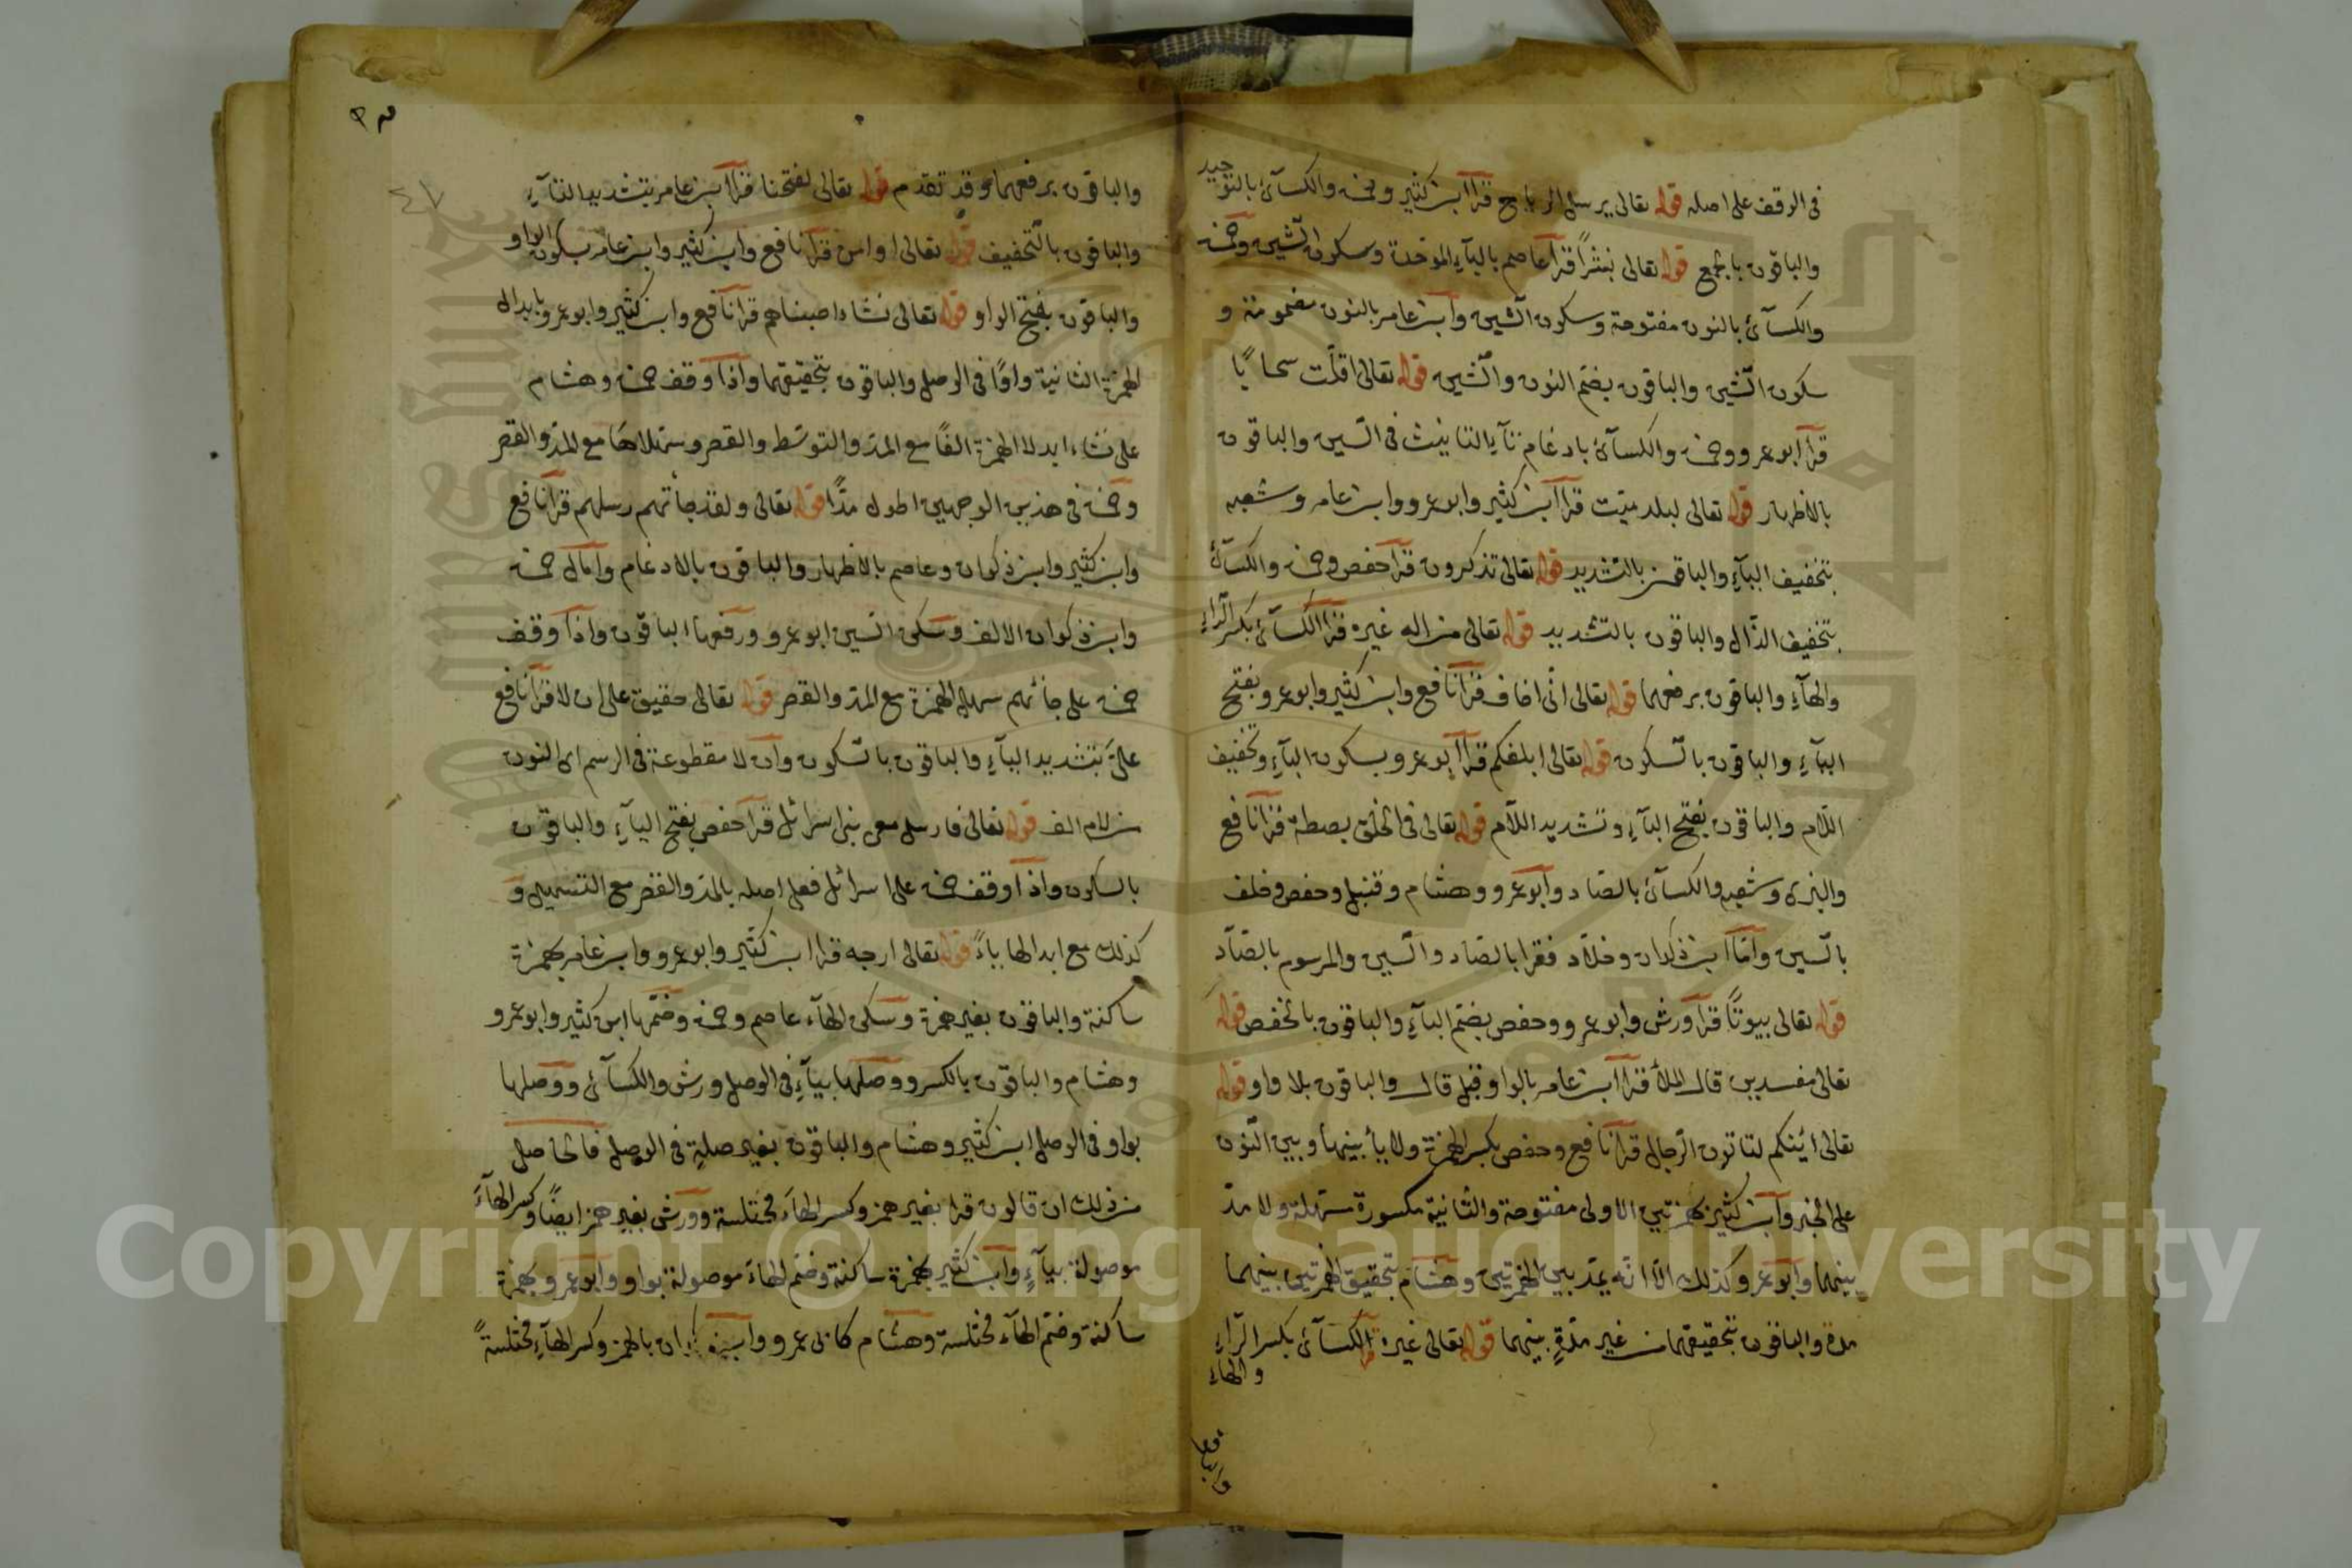 في الوقف على اصله قوله تعالى يرسل الرياح قرأ ابن كثير وحمزة والكسآئ بالتوحيد
والباقون بالجمع قوله تعالى بُشْراً قرأ عاصم بالبآءِ الموحدة وسكون الشين وحمزة
والكسآئ بالنون مفتوحة وسكون الشين وابن عامر بالنون مضمومة و
سكون الشين والباقون بضم النون والشين قوله تعالى اقلّت سحابًا
قرأ ابو عمرو وحمزة والكسآئ بادغام تآءِ التانيث في السين والباقون
بالاظهار قوله تعالى لبلد ميّت قرأ ابن كثير وابو عمرو وابن عامر وشعبه
بتخفيف اليآءِ والباقون بالتشديد قوله تعالى تذكرون قرأ حفص وحمزة والكسآئ
بتخفيف الذّال والباقون بالتشديد قوله تعالى من اله غيره قرأ الكسآئ بكسر الرّاءِ
والهآءِ والباقون برفعهما قوله تعالى انّى اخاف قرأ نافع وابن كثير وابو عمرو بفتح
اليآءِ والباقون بالسّكون قوله تعالى ابلغكم قرأ ابو عمرو بسكون البآءِ وتخفيف
اللّام والباقون بفتح البآءِ وتشديد اللّام قوله تعالى في الخلق بصطة قرأ نافع
والبزى وشعبه والكسآئ بالصّاد وابو عمرو وهشام وقنبل وحفص وخلف
بالسّين وامّا ابن ذكوان وخلّاد فقرا بالصّاد والسّين والمرسوم بالصّآد
قوله تعالى بيوتًا قرأ ورش وابو عمرو وحفص بضم البآءِ والباقون بالخفض قوله
تعالى مفسدين قال الملأ قرأ ابن عامر بالواو قبل قال والباقون بلا واو قوله
تعالى ائنكم لتاتون الرّجال قرأ نافع وحفص بكسر الهمزة ولا يأ بينها وبين النّون
على الخبر وابن كثير بهمزتين الاولى مفتوحة والثانية مكسورة مسهلة ولا مدّ
بينهما وابو عمرو كذلك الّا انّه يمدّ بين الهمزتين وهشام بتحقيق الهمزتين بينهما
مدة والباقون بتحقيقهما من غير مدّةٍ بينهما قوله تعالى غيره قرأ الكسآئ بكسر الرّاءِ
والهاءِ
والباقون
والباقون برفعهما وقد تقدم قوله تعالى لفتحنا قرأ ابن عامر بتشديد التآءِ
والباقون بالتّخفيف قوله تعالى او امن قرأ نافع وابن كثير وابن عامر بسكون الواو
والباقون بفتح الواو قوله تعالى نشاء اصبناهم قرأ نافع وابن كثير وابو عمرو بابدال
الهمزة الثانية واوًا في الوصل والباقون بتحقيقهما واذا وقف حمزة وهشام
على نشاء ابدلا الهمزة الفًا مع المدّ والتوسّط والقصر وسهلاها مع المدّ والقصر
وحمزة في هذين الوجهين اطول مدًّا قوله تعالى ولقد جأتهم رسلهم قرأ نافع
وابن كثير وابن ذكوان وعاصم بالاظهار والباقون بالادغام وامال حمزة
وابن ذكوان الالف وسكن السين ابو عمرو ورفعها الباقون واذا وقف
حمزة على جائتهم سهل الهمزة مع المدّ والقصر قوله تعالى حقيق على ان لا قرأ نافع
علىَّ بتشديد اليآءِ والباقون بالسّكون وان لا مقطوعة في الرسم اى النون
من لام الف قوله تعالى فارسل معى بنى اسرائل قرأ حفص بفتح اليآءِ والباقون
بالسكون واذا وقف حمزة على اسرائل فعلى اصله بالمدّ والقصر مع التسهيل و
كذلك مع ابدالها ياءً قوله تعالى ارجه قرأ ابن كثير وابو عمرو وابن عامر بهمزة
ساكنة والباقون بغير همزة وسكن الهآء عاصم وحمزة وضمّها ابن كثير وابو عمرو
وهشام والباقون بالكسر ووصلها بيآءٍ في الوصل ورش والكسآئ ووصلها
بواو في الوصل ابن كثير وهشام والباقون بغير صلةٍ في الوصل فالحاصل
من ذلك ان قالون قرا بغير همز وكسر الهآءَ مختلسة وورش بغير همز ايضًا وكسر الهآءَ
موصولة بيآءٍ وابن كثير بهمزة ساكنة وضم الهاءَ موصولة بواو وابو عمرو بهمزة
ساكنة وضم الهآء مختلسة وهشام كابن عمرو وابن ذكوان بالهمز وكسر الهآءِ مختلسةً